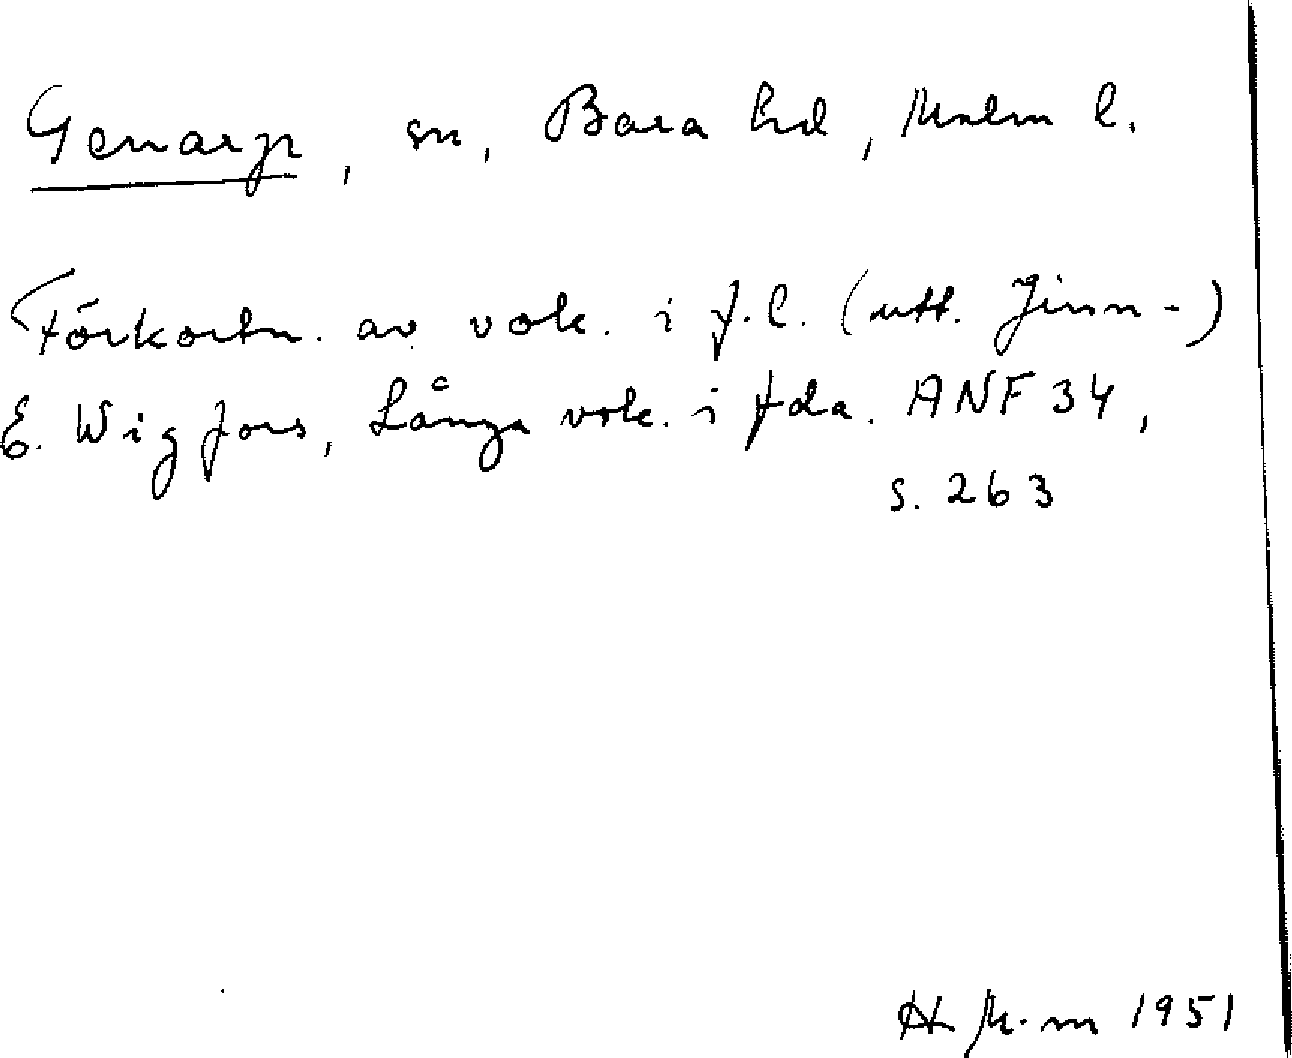 Genarp, sn, Bara hd, Malm l.
Förkortn. av vok. i f.l. (utt. Jinn-)
E. Wigfors, Långa vok. i fda. ANF 34,
s. 263
1951